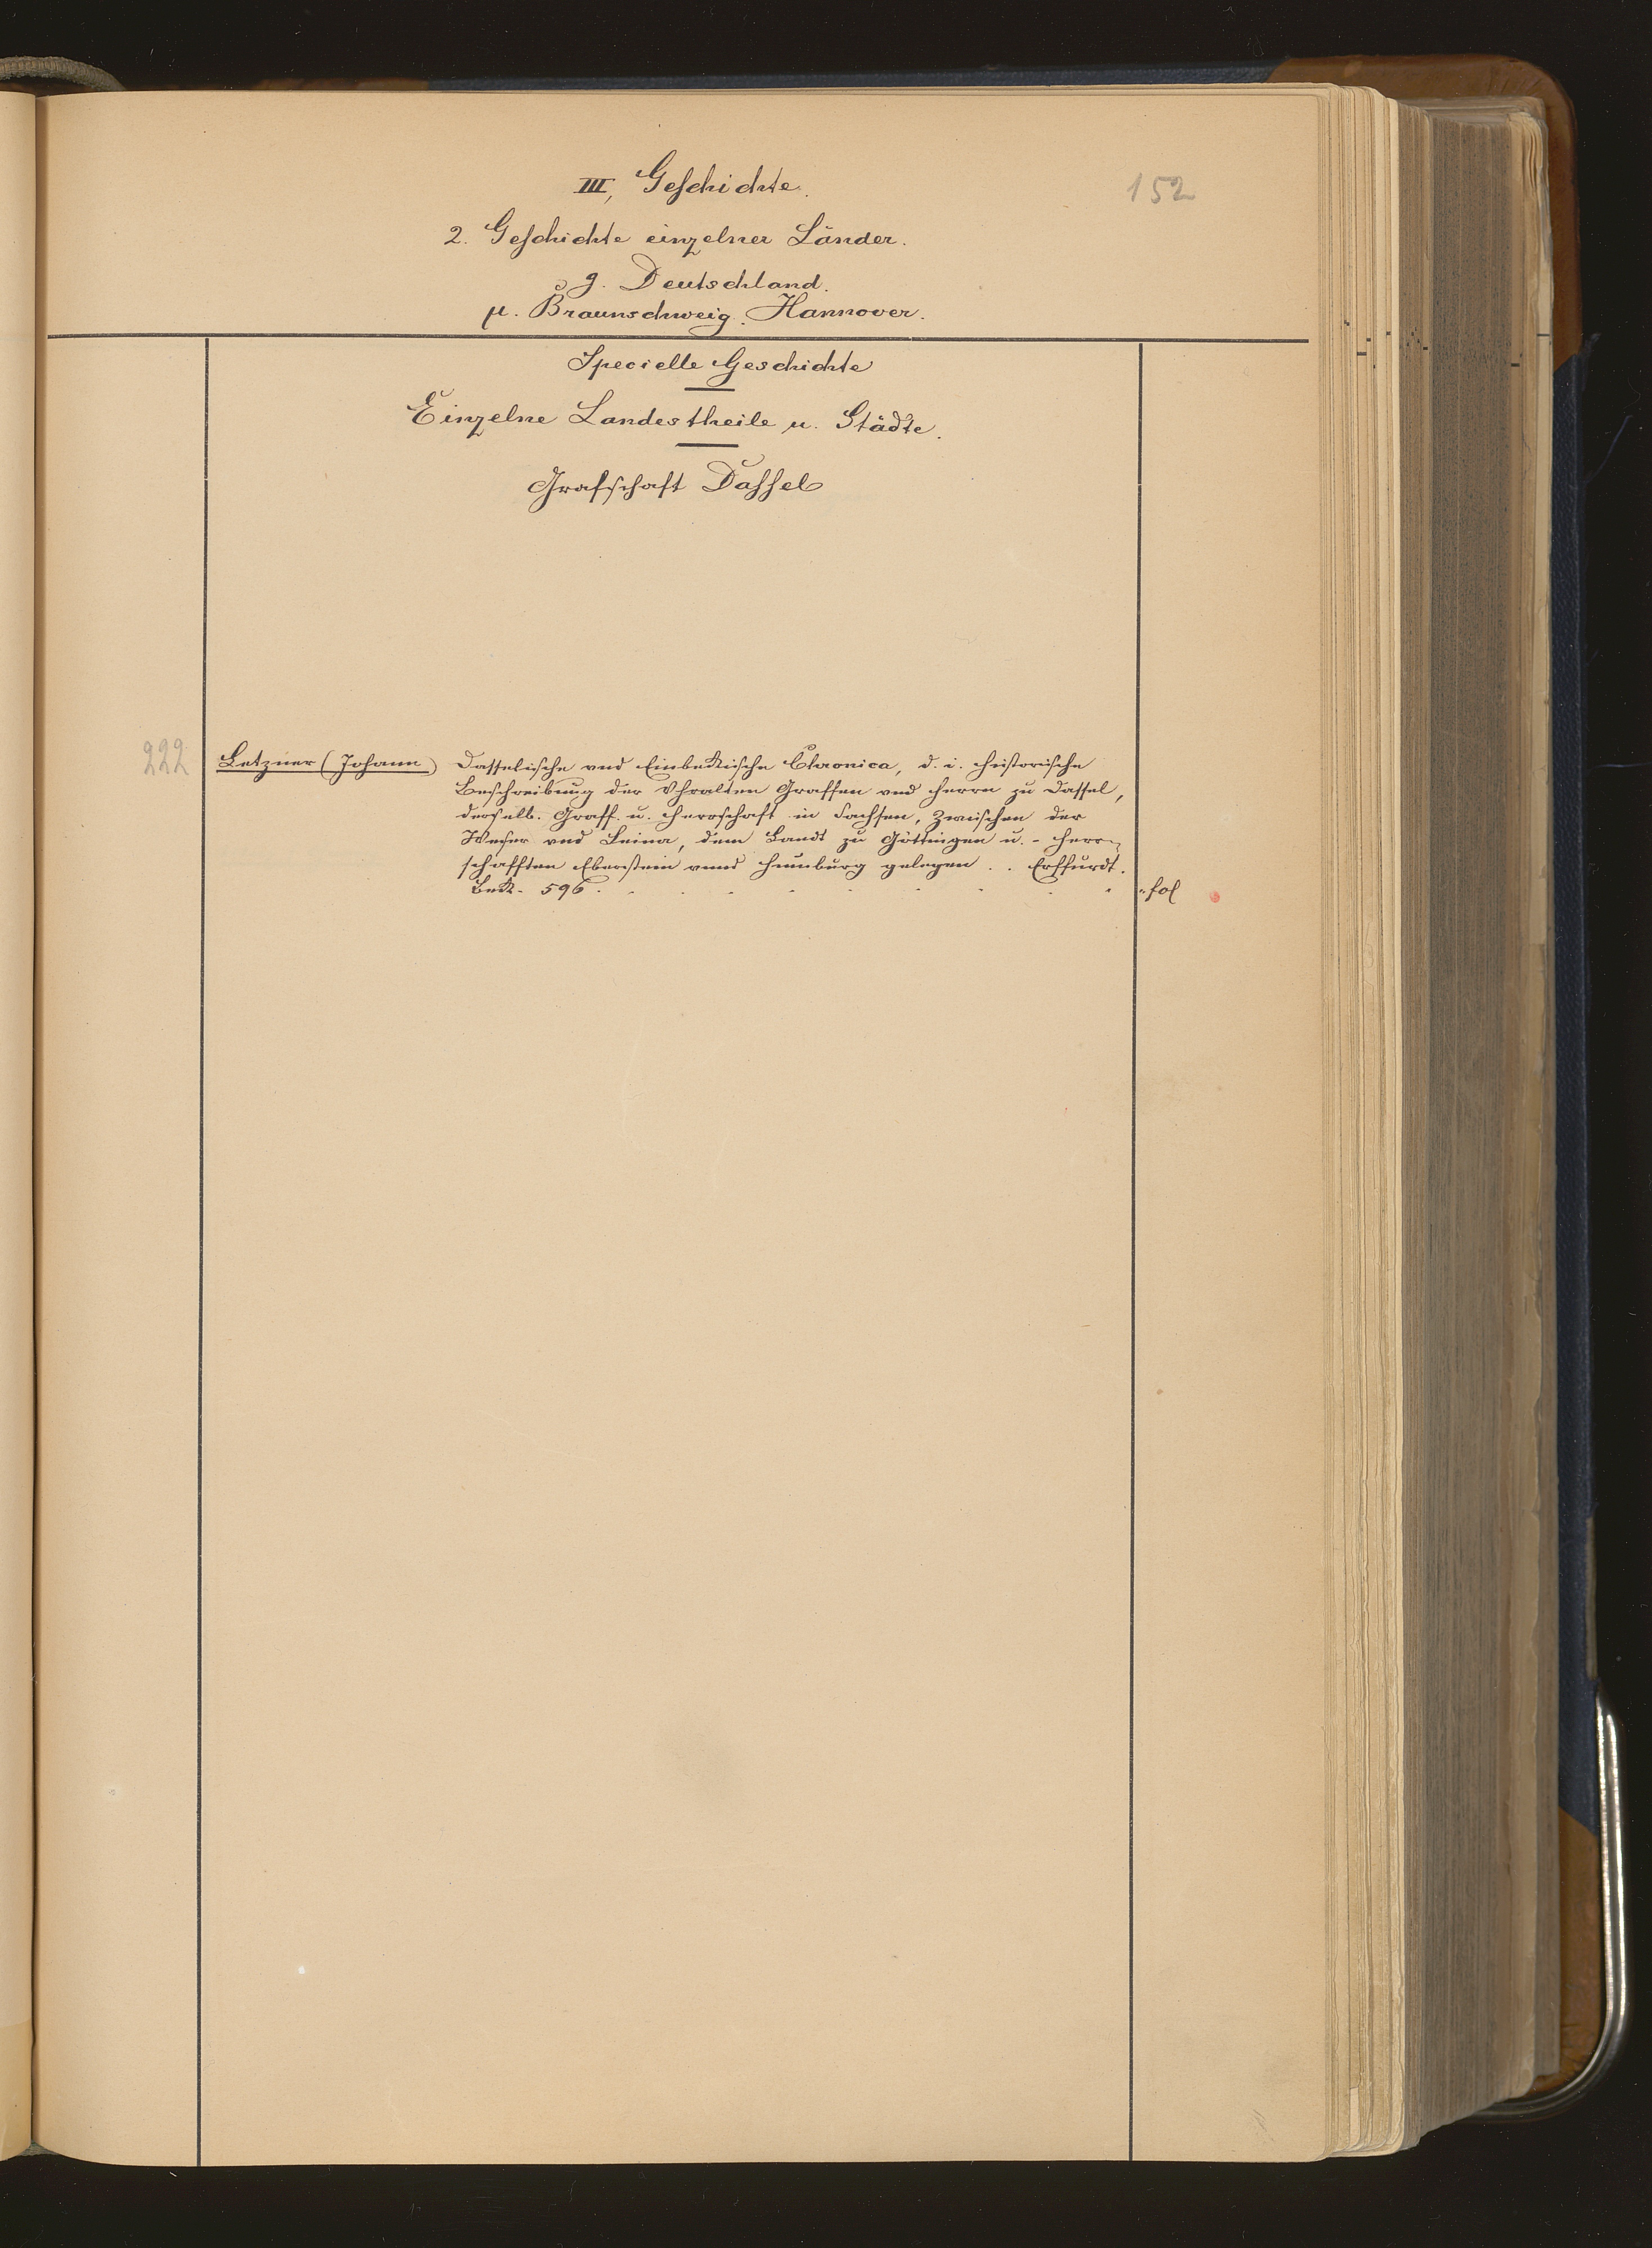 III, Geschichte.
152
2. Geschichte einzelner Länder.
g. Deutschland.
μ. Braunschweig. Hannover.
Specielle Geschichte
Einzelne Landestheile u. Städte.
Grafschaft Dassel
222
Letzner (Johann) Dasselische vnd Einbeckische Chronica, d. i. Historische
Beschreibung der Vhralten Graffen vnd Herrn zu Dassel,
derselb. Graff. u. Herrschaft in Sachsen, Zwischen der
Weser vnd Leina, dem Landt zu Göttingen u. - Herr-
schafften Eberstein vnnd Humburg gelegen . . Erffurdt.
596 . . . . . . . . . fol